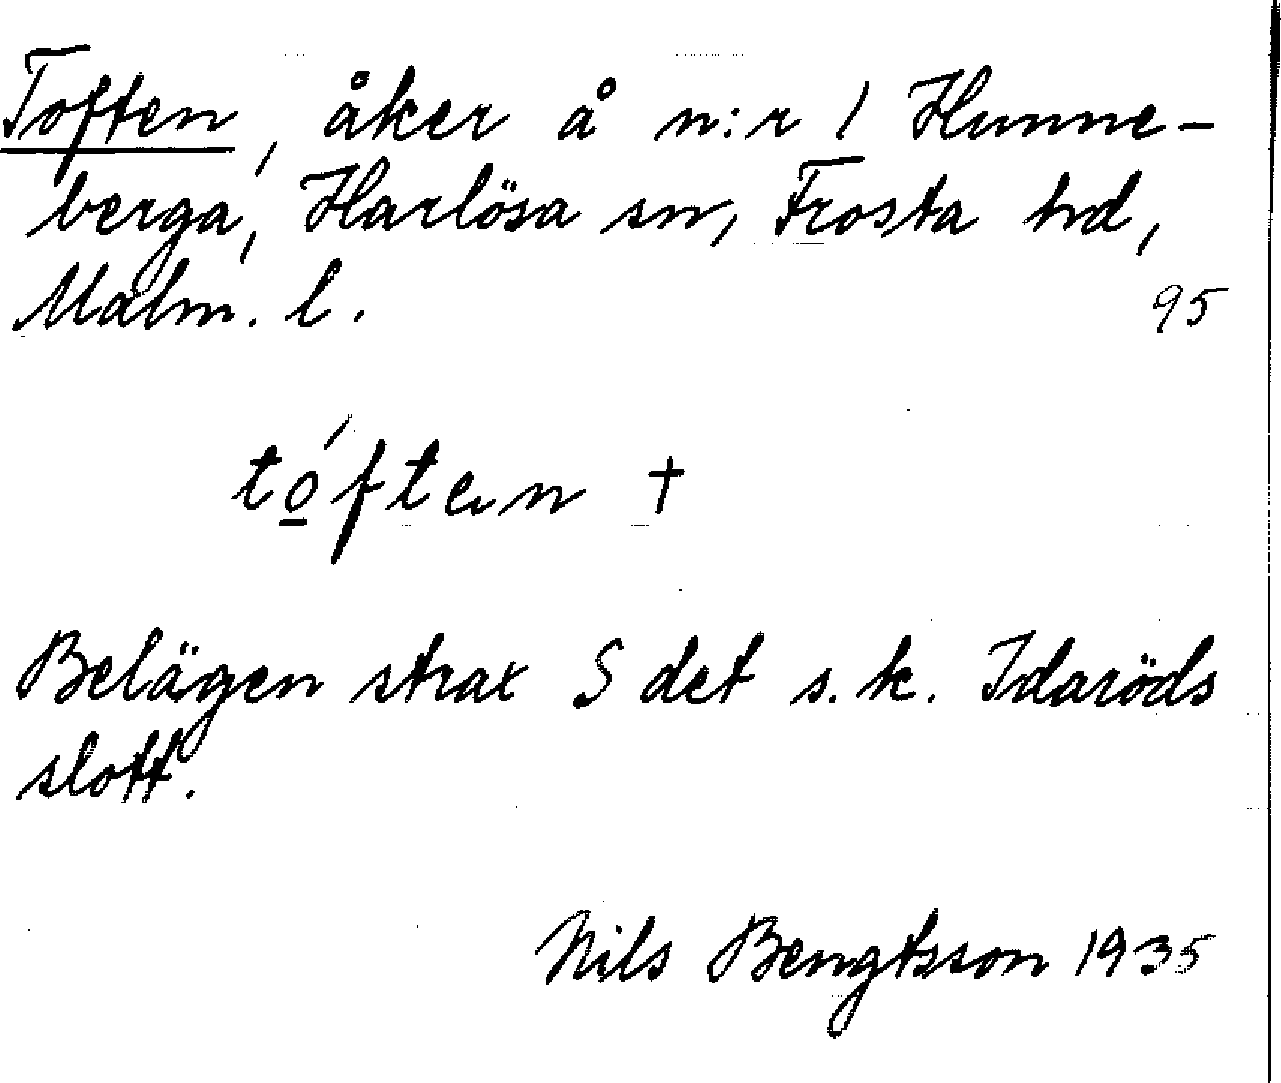 Toften, åker å n:r 1 Hunne-
berga, Harlösa sn, Frosta hd,
Malm. l. 95
tó̲ften †
Belägen strax S det s.k. Idaröds
slott.
Nils Bengtsson 1935